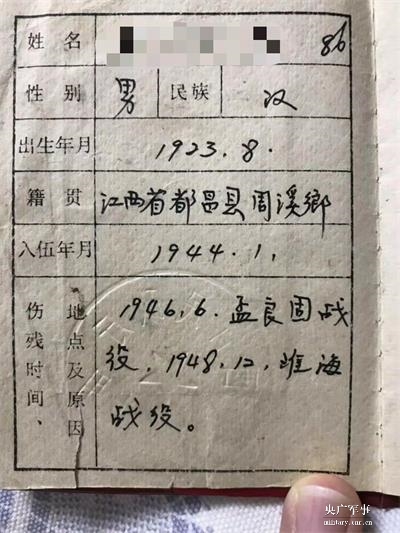 姓名 86
性别 男 民族 汉
出生年月 1923.8.
籍贯 江西省都昌县周溪鄉
入伍年月 1944.1.
伤残时间、地点及原因
1946.6.孟良固战
役，1948.12，淮海
战役。
央广军事
military.cnr.cn